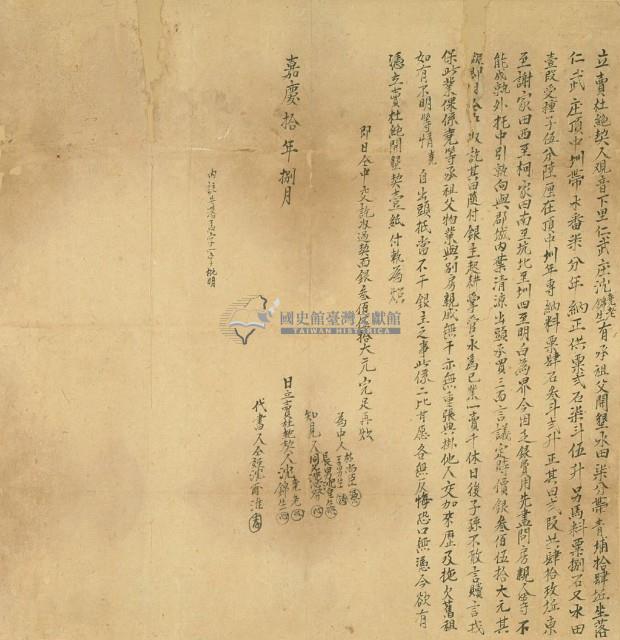 立賣杜絕契人觀音下里仁武庄沈堯老錦生有承祖父開墾水田柒分帶青埔拾肆坵坐落
仁武庄頂中圳帶水番柒分年納正供粟弍石柒斗伍升另馬料粟捌石又水田
壹段受種子伍分陸厘在頂中圳年専納料粟肆石叁斗弍升正其田弍段共肆拾玖坵東
至謝家田西至柯家田南至坑北至圳四至明白為界今因乏銀費用先盡問房親人等不
能成就外托中引就向與郡城內葉清涼出頭承買三面言議定時價銀叁佰伍拾大元其
銀即日仝中收訖其田隨付銀主起耕掌管永為己業一賣千休日後子孫不敢言贖言找
保此業保係堯等承祖父物業與別房親戚無干亦無重張典掛他人交加來歷及拖欠舊租
如有不明等情堯自出頭抵當不干銀主之事此係二比甘愿各無反悔恐口無憑今欲有
憑立賣杜絕開墾契壹紙付執為炤
即日仝中交訖收過契面銀叁佰伍拾大元完足再炤
嘉慶拾年捌月
內註生
字批明
為中人
知見人
日立賣杜絕契人沈堯老錦生
代書人仝
沈
國史館臺灣文獻館
TAIWAN HISTORICA